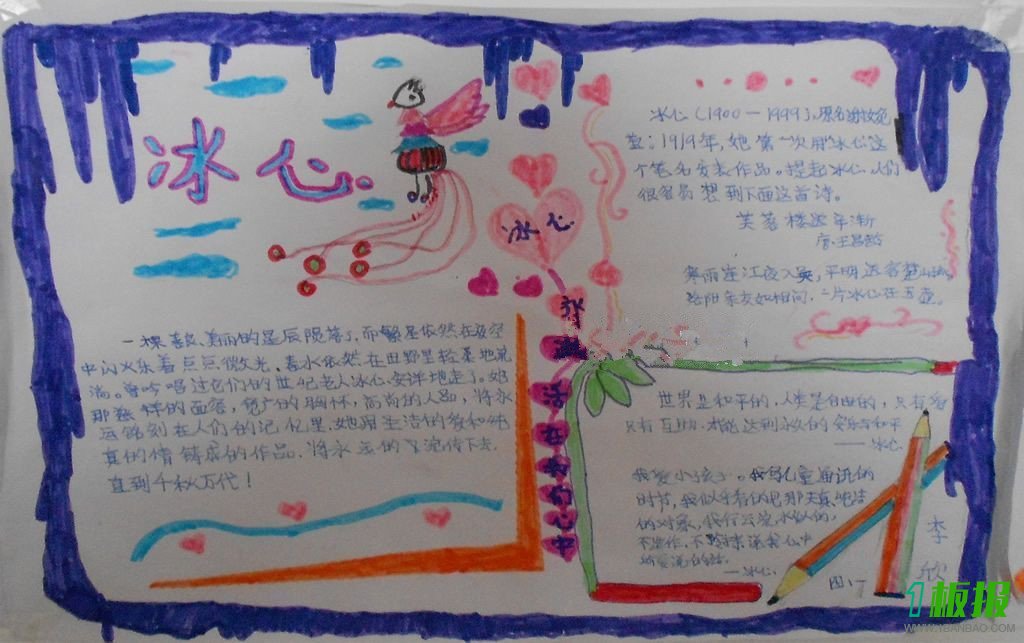 冰心
冰心(1900—1999),原名谢婉莹
1919年,她第一次用冰心这
个笔名发表作品。提起冰心,人们
很容易想到下面这首诗。
芙蓉楼送辛渐
唐·王昌龄
寒雨连江夜入吴,平明送客楚山孤
洛阳亲友如相问,一片冰心在玉壶。
冰心
永远活在
心中
一棵善良、美丽的星辰陨落了,而繁星依然在夜空
中闪烁着点点微光,春水依然在田野里轻柔地流
淌。曾吟唱过它们的世纪老人冰心,安详地走了。她
那慈祥的面容,宽广的胸怀,高尚的人品,将永
远铭刻在人们的记忆里,她用圣洁的爱和纯
真的情铸成的作品,将永远的 流传下去,
直到千秋万代!
世界是和平的,人类是自由的,只有
只有互助,才能达到永久的安乐与和平
——冰心
我爱小孩子。我写儿童通讯的
时节,我似乎看的见那天真纯洁
的对象,我行云流水似的,
不造作,不 说我心中
所要说的话。
——冰心
图:
李
欣
1板报
WWW.1BANBAO.COM